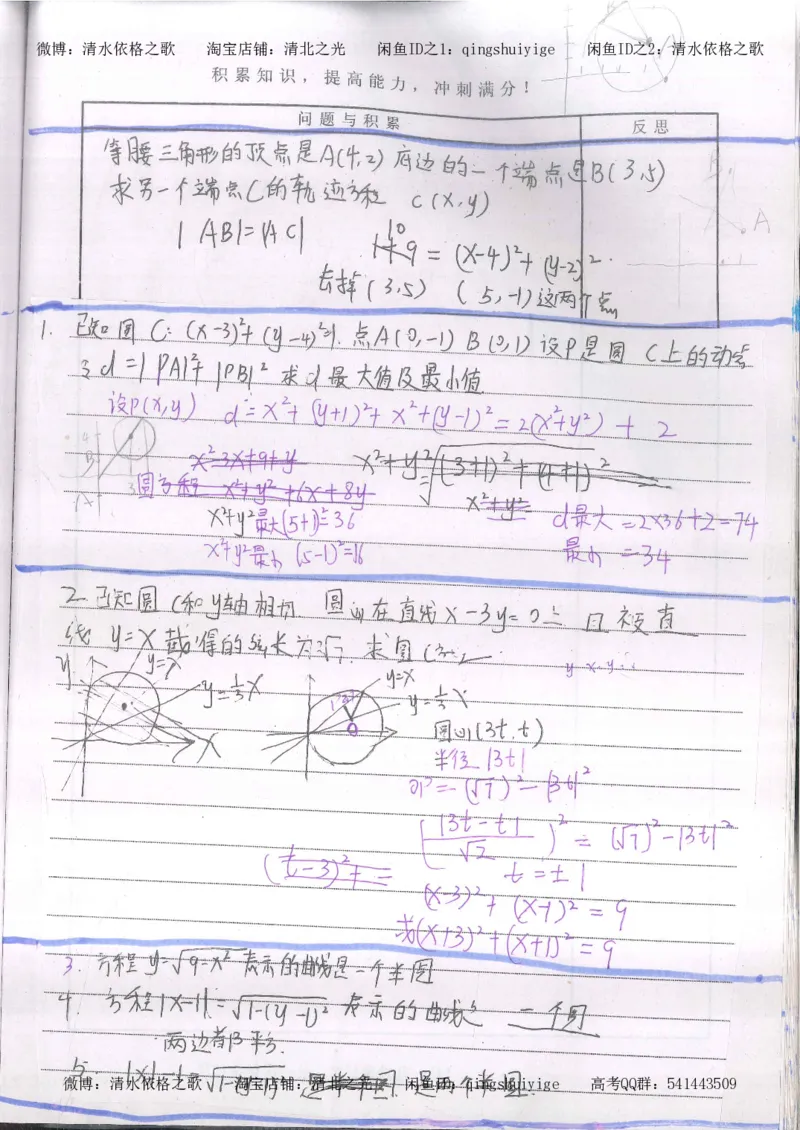 微博：清水依格之歌 淘宝店铺：清北之光 闲鱼ID之1：qingshuiyige 闲鱼ID之2：清水依格之歌
积累知识，提高能力，冲刺满分！
问题与积累 反思
等腰三角形的顶点是A(4,2) 底边的一个端点是B(3,5)
求另一个端点C的轨迹方程 C(x,y)
|AB|=|AC|
10
1+9 = (x-4)²+(y-2)²
去掉(3,5) (5,-1)这两个点
1. 已知圆C: (x-3)²+(y-4)²=1. 点A(0,-1) B(0,1) 设P是圆C上的动点
d=|PA|²+|PB|² 求d最大值及最小值
设P(x,y) d=x²+(y+1)²+x²+(y-1)²=2(x²+y²)+2
圆方程
x²+y²最大(5+1)²=36 d最大=2×36+2=74
x²+y²最小(5-1)²=16 最小=34
2. 已知圆C和y轴相切 圆心在直线x-3y=0上 且被直
线y=x截得的弦长为2√7. 求圆C
y y=x y=⅓x x y=x y=⅓x
圆心(3t,t)
半径|3t|
(√7)²-|3t|²
(|3t-t|/√2)² = (√7)²-|3t|²
t=±1
(x-3)²+(x-1)²=9
或(x+3)²+(x+1)²=9
3. 方程y=√9-x² 表示的曲线是一个半圆
4. 方程|x-1|=√1-(y-1)² 表示的曲线 一个圆
两边都平方.
5.
微博：清水依格之歌 淘宝店铺：清北之光 闲鱼ID：qingshuiyige 高考QQ群：541443509